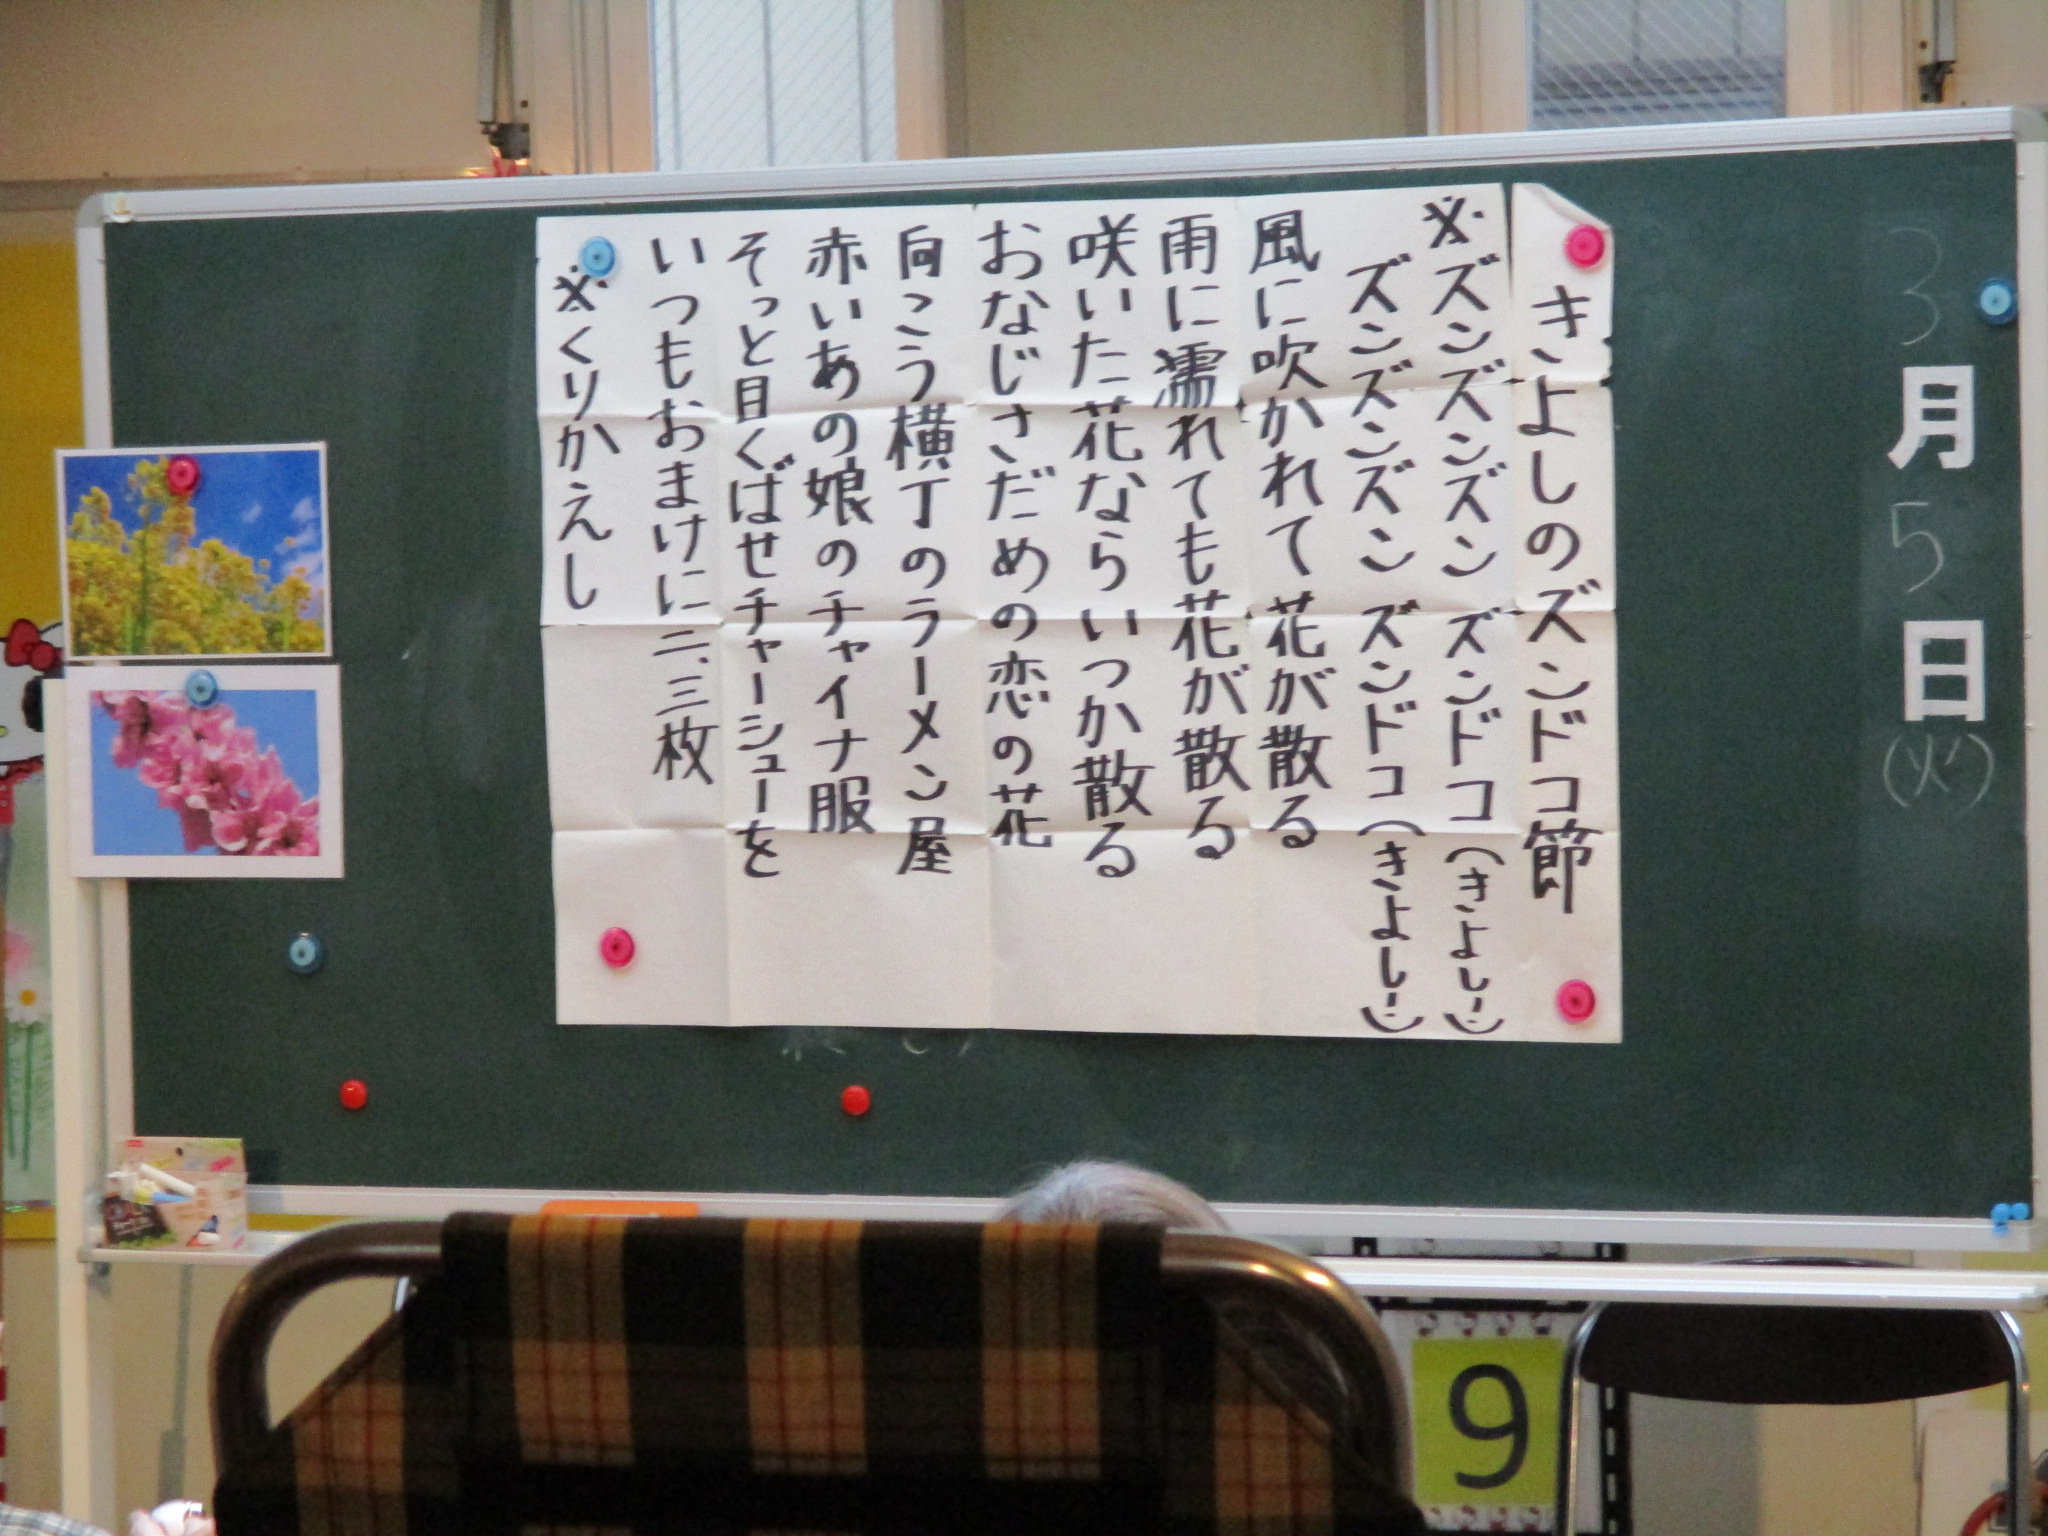 3月5日(火)
きよしのズンドコ節
※ズンズンズンズン ズンドコ(きよし!)
ズンズンズンズン ズンドコ(きよし!)
風に吹かれて 花が散る
雨に濡れても花が散る
咲いた花ならいつか散る
おなじさだめの恋の花
向こう横丁のラーメン屋
赤いあの娘のチャイナ服
そっと目くばせチャーシューを
いつもおまけに二、三枚
※くりかえし
9